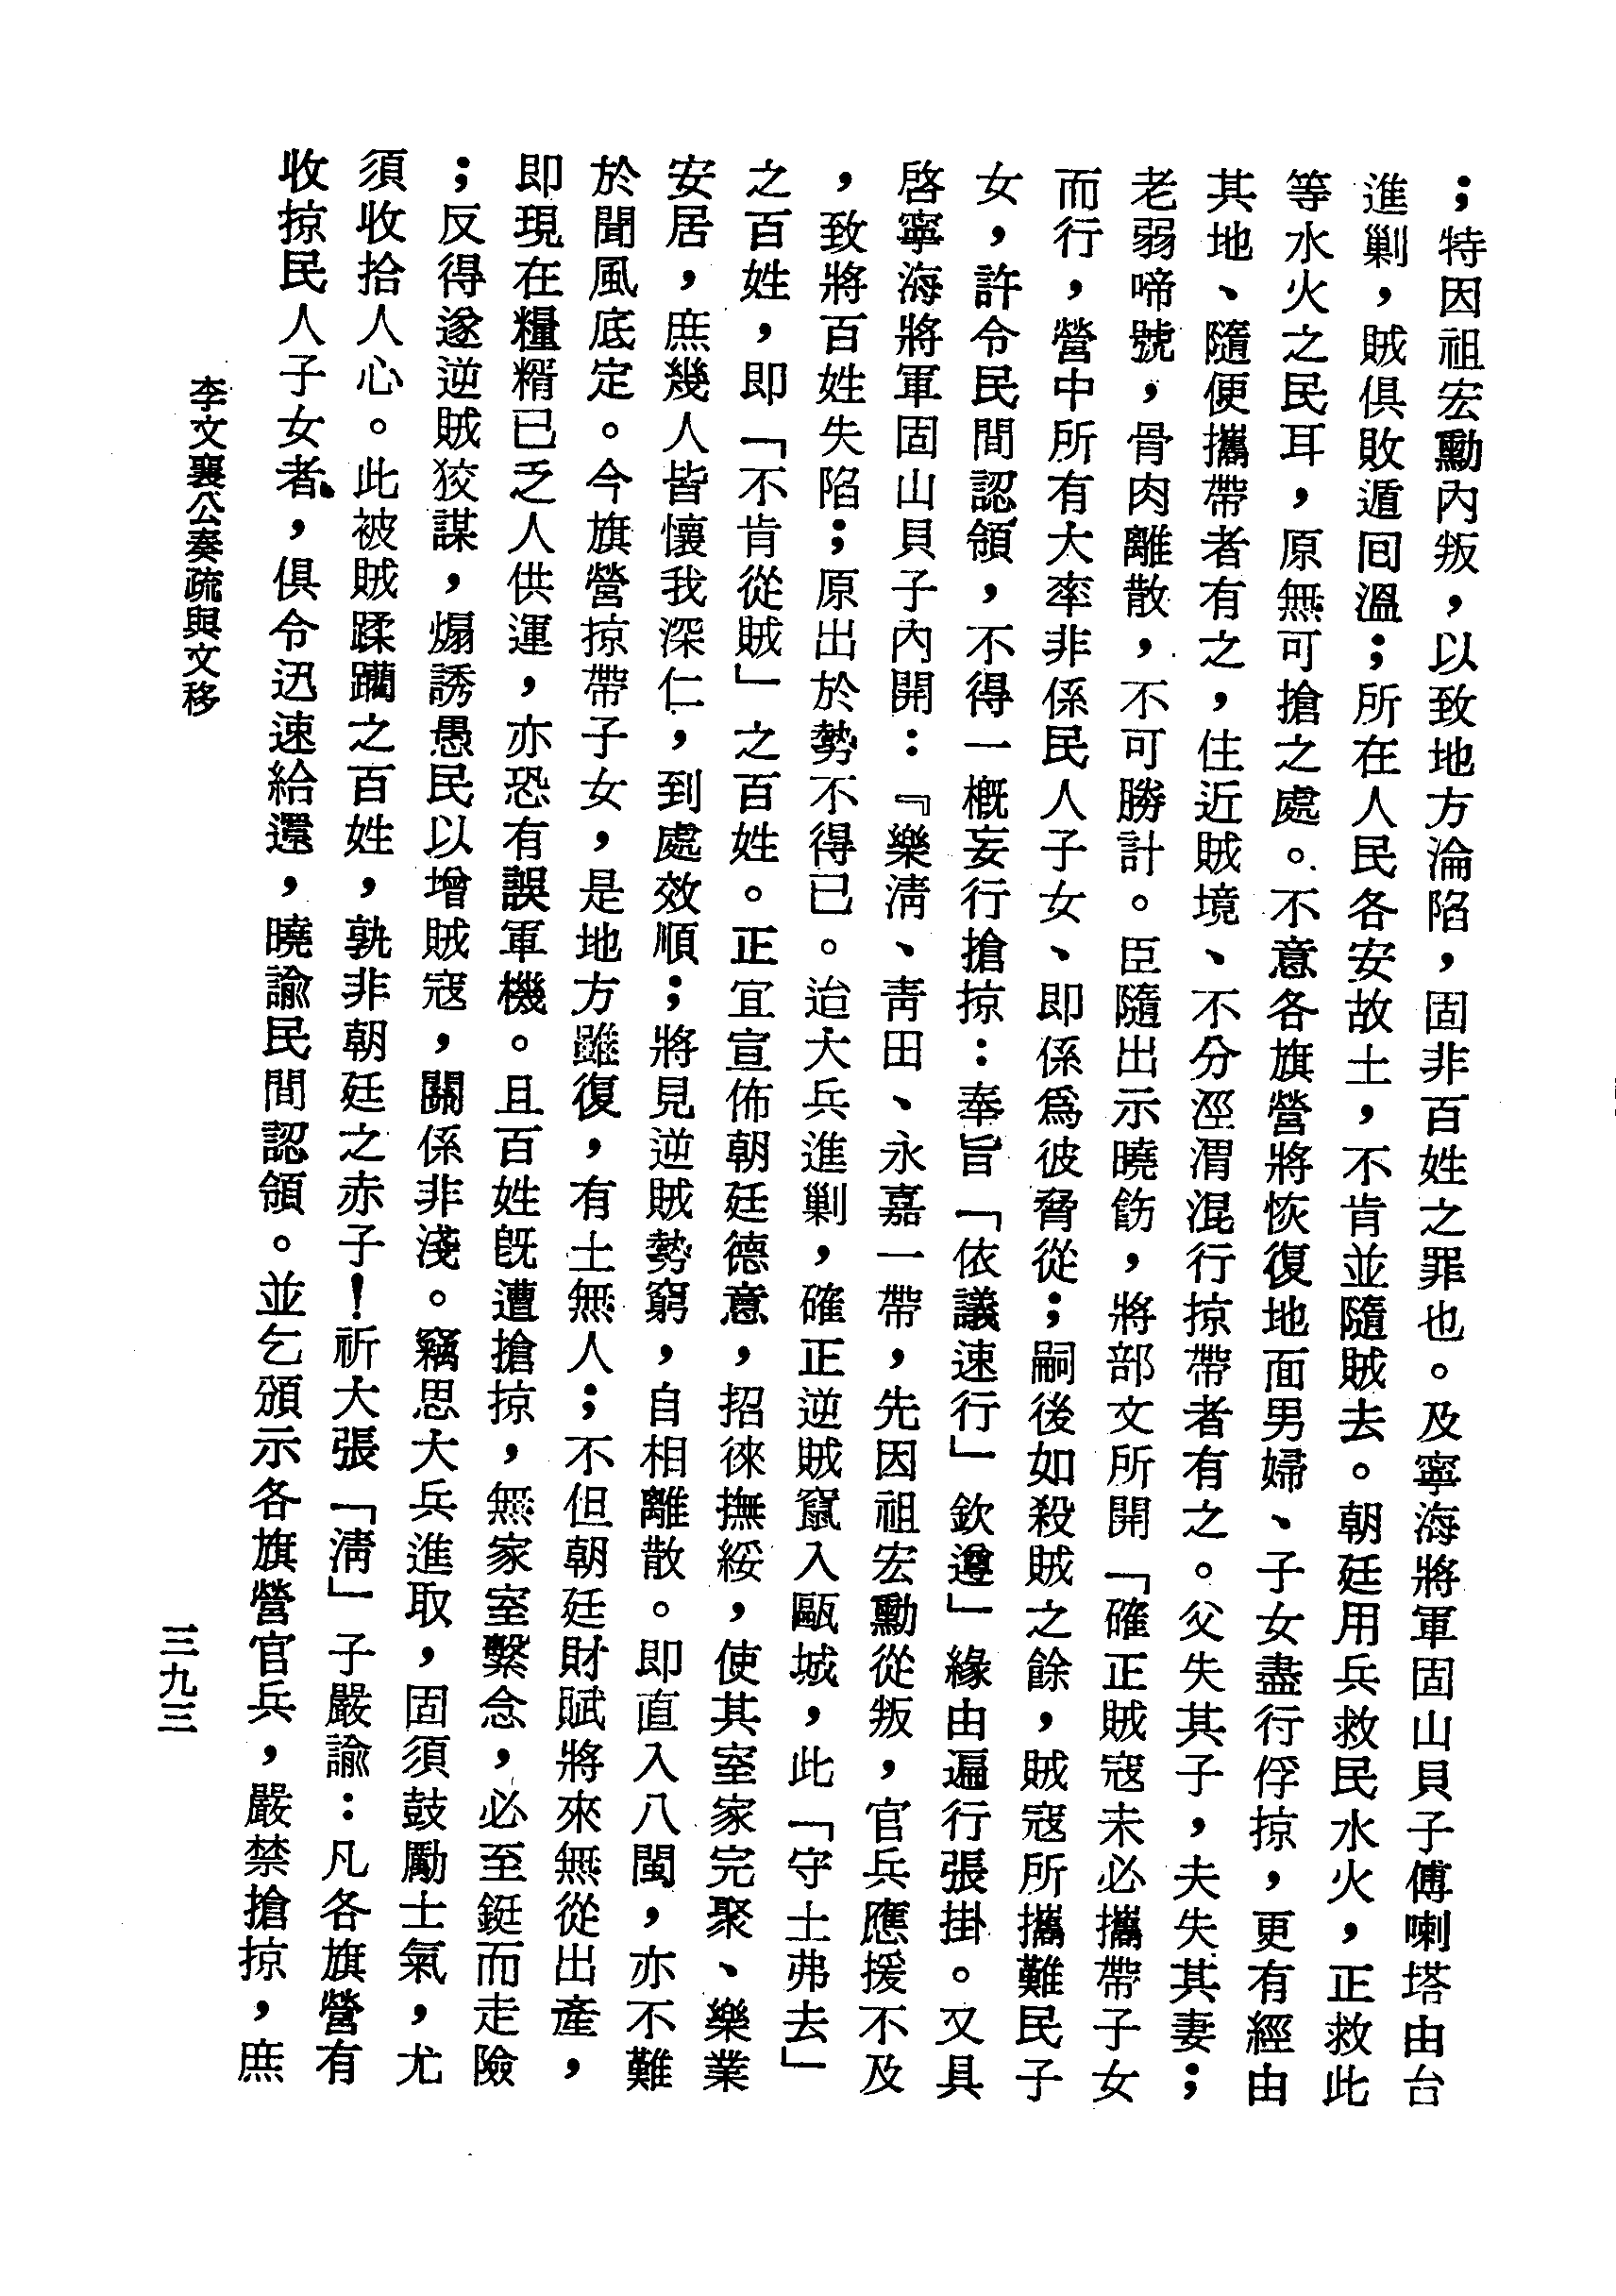 ；特因祖宏勳內叛，以致地方淪陷，固非百姓之罪也。及寧海將軍固山貝子傅喇塔由台
進剿，賊俱敗遁囘溫；所在人民各安故土，不肯並隨賊去。朝廷用兵救民水火，正救此
等水火之民耳，原無可搶之處。不意各旗營將恢復地面男婦、子女盡行俘掠，更有經由
其地、隨便攜帶者有之，住近賊境、不分涇渭混行掠帶者有之。父失其子，夫失其妻；
老弱啼號，骨肉離散，不可勝計。臣隨出示曉飭，將部文所開「確正賊寇未必攜帶子女
而行，營中所有大率非係民人子女、即係爲彼脅從；嗣後如殺賊之餘，賊寇所攜難民子
女，許令民間認領，不得一概妄行搶掠：奉旨「依議速行」欽遵」緣由遍行張掛。又具
啓寧海將軍固山貝子內開：『樂淸、靑田、永嘉一帶，先因祖宏勳從叛，官兵應援不及
，致將百姓失陷；原出於勢不得已。迨大兵進剿，確正逆賊竄入甌城，此「守土弗去」
之百姓，即「不肯從賊」之百姓。正宜宣佈朝廷德意，招徠撫綏，使其室家完聚、樂業
安居，庶幾人皆懷我深仁，到處效順；將見逆賊勢窮，自相離散。即直入八閩，亦不難
於聞風底定。今旗營掠帶子女，是地方雖復，有土無人；不但朝廷財賦將來無從出產，
即現在糧糈已乏人供運，亦恐有誤軍機。且百姓旣遭搶掠，無家室繫念，必至鋌而走險
；反得遂逆賊狡謀，煽誘愚民以增賊寇，關係非淺。竊思大兵進取，固須鼓勵士氣，尤
須收拾人心。此被賊蹂躪之百姓，孰非朝廷之赤子！祈大張「淸」子嚴諭：凡各旗營有
收掠民人子女者，俱令迅速給還，曉諭民間認領。並乞頒示各旗營官兵，嚴禁搶掠，庶
李文襄公奏疏與文移
三九三